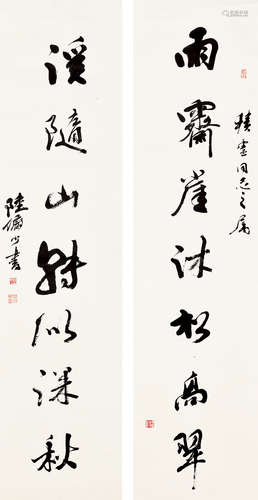 雨霽崖沐松高翠
同志之屬
溪隨山轉似深秋
陸儼少書